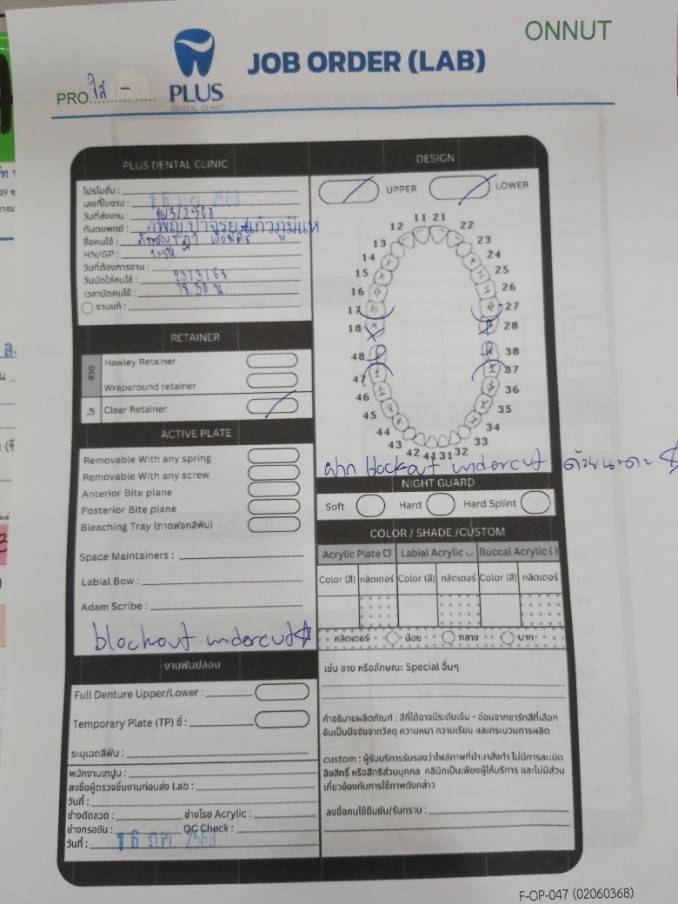 ONNUT
PLUS
DENTAL CLINIC
JOB ORDER (LAB)
PRO ใส -
PLUS DENTAL CLINIC
โปรโมชั่น :
เลขที่ใบงาน :
16 ก.ค. 2568
วันที่ส่งงาน :
ทันตแพทย์ :
ชื่อคนไข้ :
HN/GP :
วันที่ต้องการงาน :
วันนัดใส่คนไข้ : 23/3/68
เวลานัดคนไข้ : 19.30 น
งานแก้ :
RETAINER
ลวด
Hawley Retainer
Wraparound retainer
ใส
Clear Retainer
ACTIVE PLATE
Removable With any spring
Removable With any screw
Anterior Bite plane
Posterior Bite plane
Bleaching Tray (ถาดฟอกสีฟัน)
Space Maintainers :
Labial Bow :
Adam Scribe :
blockout undercut
งานฟันปลอม
Full Denture Upper/Lower :
Temporary Plate (TP) ซี่ :
ระบุเฉดสีฟัน :
พนักงานเทปูน :
ลงชื่อผู้ตรวจชิ้นงานก่อนส่ง Lab :
วันที่ :
ช่างดัดลวด :
ช่างโรย Acrylic :
ช่างกรอขัด :
QC Check :
วันที่ : 16 ก.ค. 2568
DESIGN
UPPER
LOWER
11 21
12 22
13 23
14 24
15 25
16 26
17 27
18 28
48 38
47 37
46 36
45 35
44 34
43 33
42 41 31 32
ฝาก blockout undercut ด้วยนะคะ
NIGHT GUARD
Soft
Hard
Hard Splint
COLOR / SHADE /CUSTOM
Acrylic Plate
Labial Acrylic
Buccal Acrylic ( )
Color (สี) กลิตเตอร์ Color (สี) กลิตเตอร์ Color (สี) กลิตเตอร์
กลิตเตอร์ น้อย กลาง มาก
เช่น ลาย หรือลักษณะ Special อื่นๆ
คำอธิบายผลิตภัณฑ์ : สีที่ได้อาจมีระดับเข้ม - อ่อนจากชาร์ทสีที่เลือก
อันเป็นปัจจัยจากวัสดุ ความหนา ความเรียบ และกระบวนการผลิต
custom : ผู้รับบริการรับรองว่าไฟล์ภาพที่นำมาสั่งทำ ไม่มีการละเมิด
ลิขสิทธิ์ หรือสิทธิส่วนบุคคล คลินิกเป็นเพียงผู้ให้บริการ และไม่มีส่วน
เกี่ยวข้องกับการใช้ภาพดังกล่าว
ลงชื่อคนไข้ยืนยัน/รับทราบ :
F-OP-047 (02060368)